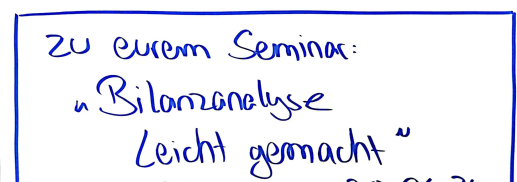 zu eurem Seminar:
"Bilanzanalyse
Leicht gemacht"